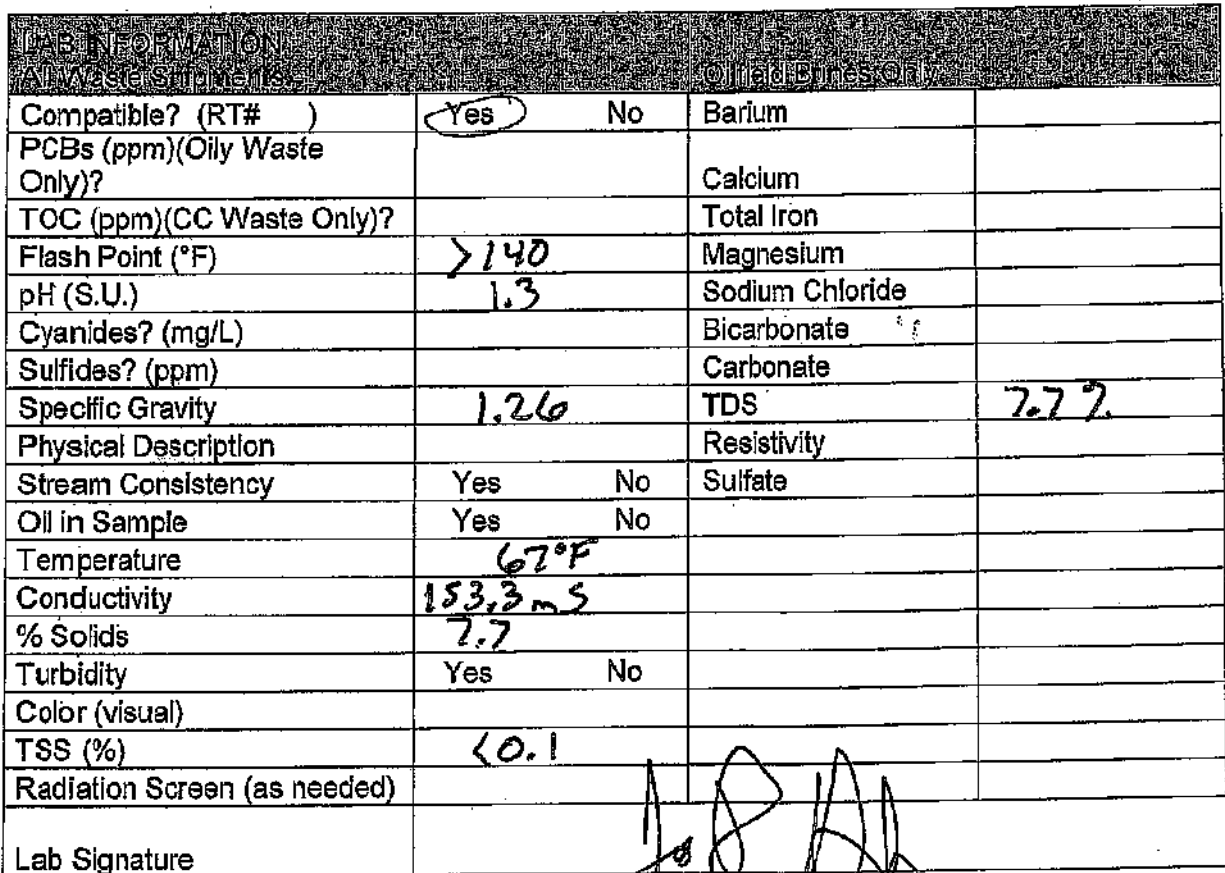 LAB INFORMATION
All Waste Shipments Oilfield Brines Only
Compatible? (RT# ) Yes No Barium
PCBs (ppm)(Oily Waste
Only)? Calcium
TOC (ppm)(CC Waste Only)? Total Iron
Flash Point (°F) >140 Magnesium
pH (S.U.) 1.3 Sodium Chloride
Cyanides? (mg/L) Bicarbonate
Sulfides? (ppm) Carbonate
Specific Gravity 1.26 TDS 7.7%
Physical Description Resistivity
Stream Consistency Yes No Sulfate
Oil in Sample Yes No
Temperature 67°F
Conductivity 153.3 mS
% Solids 7.7
Turbidity Yes No
Color (visual)
TSS (%) <0.1
Radiation Screen (as needed)
Lab Signature